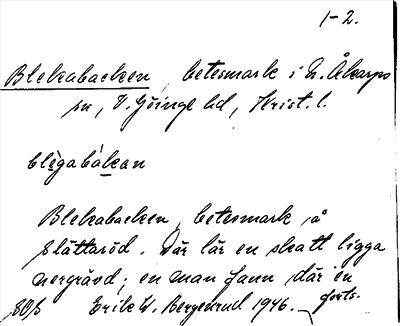 1-2.
Blekabacken, betesmark i N. Åkarps
sn, V. Göinge hd, Krist. l.
blègabákan
Blekabacken, betesmark å
Slättaröd. Där lär en skatt ligga
nergrävd; en man fann där en
forts.
SOS Erik W. Bergenrud 1946.